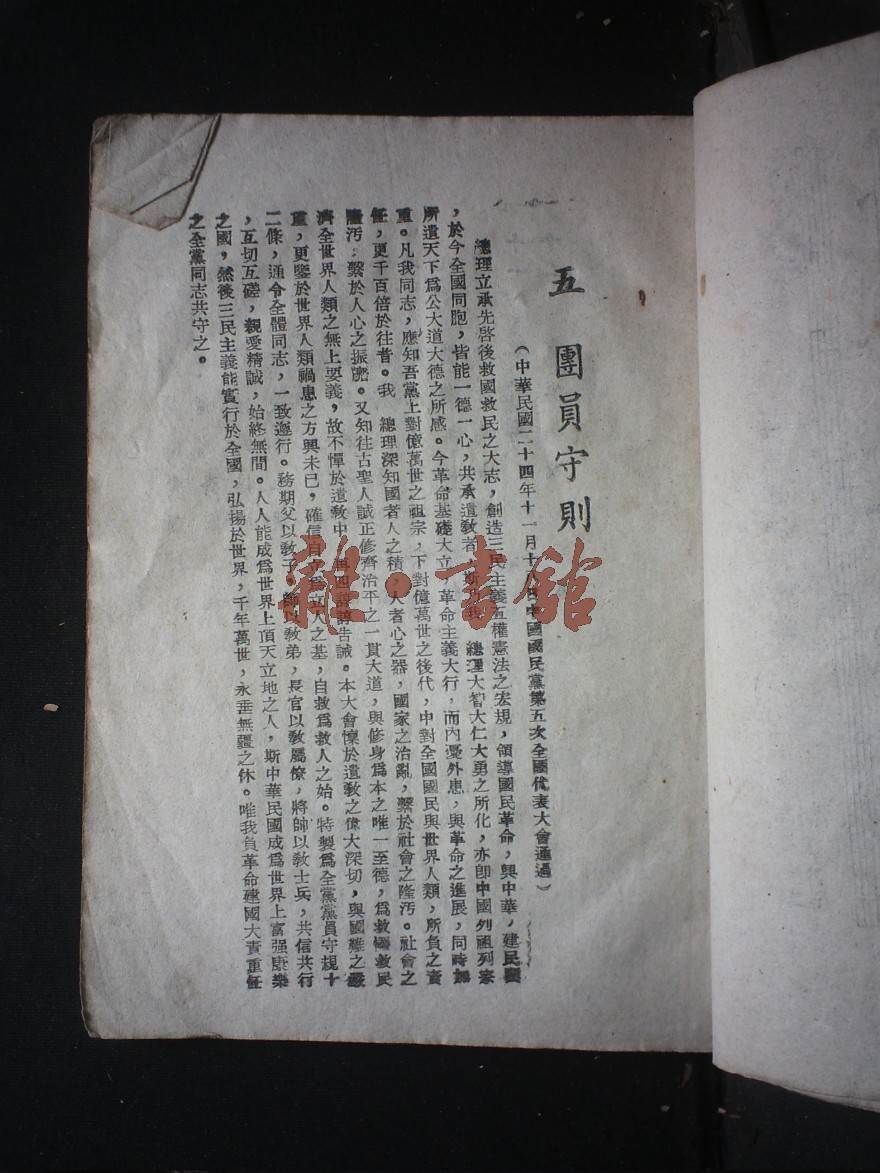 五 團員守則
(中華民國二十四年十一月十八日中國國民黨第五次全國代表大會通過)
總理立承先啓後救國救民之大志,創造三民主義五權憲法之宏規,領導國民革命,興中華,建民國
,於今全國同胞,皆能一德一心,共承遺教者,斯乃我 總理大智大仁大勇之所化,亦卽中國列祖列宗
所遺天下爲公大道大德之所感。今革命基礎大立,革命主義大行,而內憂外患,與革命之進展,同時加
重。凡我同志,應知吾黨上對億萬世之祖宗,下對億萬世之後代,中對全國國民與世界人類,所負之責
任,更千百倍於往昔。我 總理深知國者人之積,人者心之器,國家之治亂,繫於社會之隆汚。社會之
隆汚,繫於人心之振靡。又知往古聖人誠正修齊治平之一貫大道,與修身爲本之唯一至德,爲救國救民
濟全世界人類之無上要義,故不憚於遺敎中,再四諄諄告誡。本大會懍於遺敎之偉大深切,與國難之嚴
重,更鑒於世界人類禍患之方興未已,確信自立爲立人之基,自救爲救人之始。特製爲全黨黨員守規十
二條,通令全體同志,一致遵行。務期父以敎子,師以敎弟,長官以敎屬僚,將帥以敎士兵,共信共行
,互切互磋,親愛精誠,始終無間。人人能成爲世界上頂天立地之人,斯中華民國成爲世界上富强康樂
之國,然後三民主義能實行於全國,弘揚於世界,千年萬世,永垂無疆之休。唯我負革命建國大責重任
之全黨同志共守之。
雜·書館